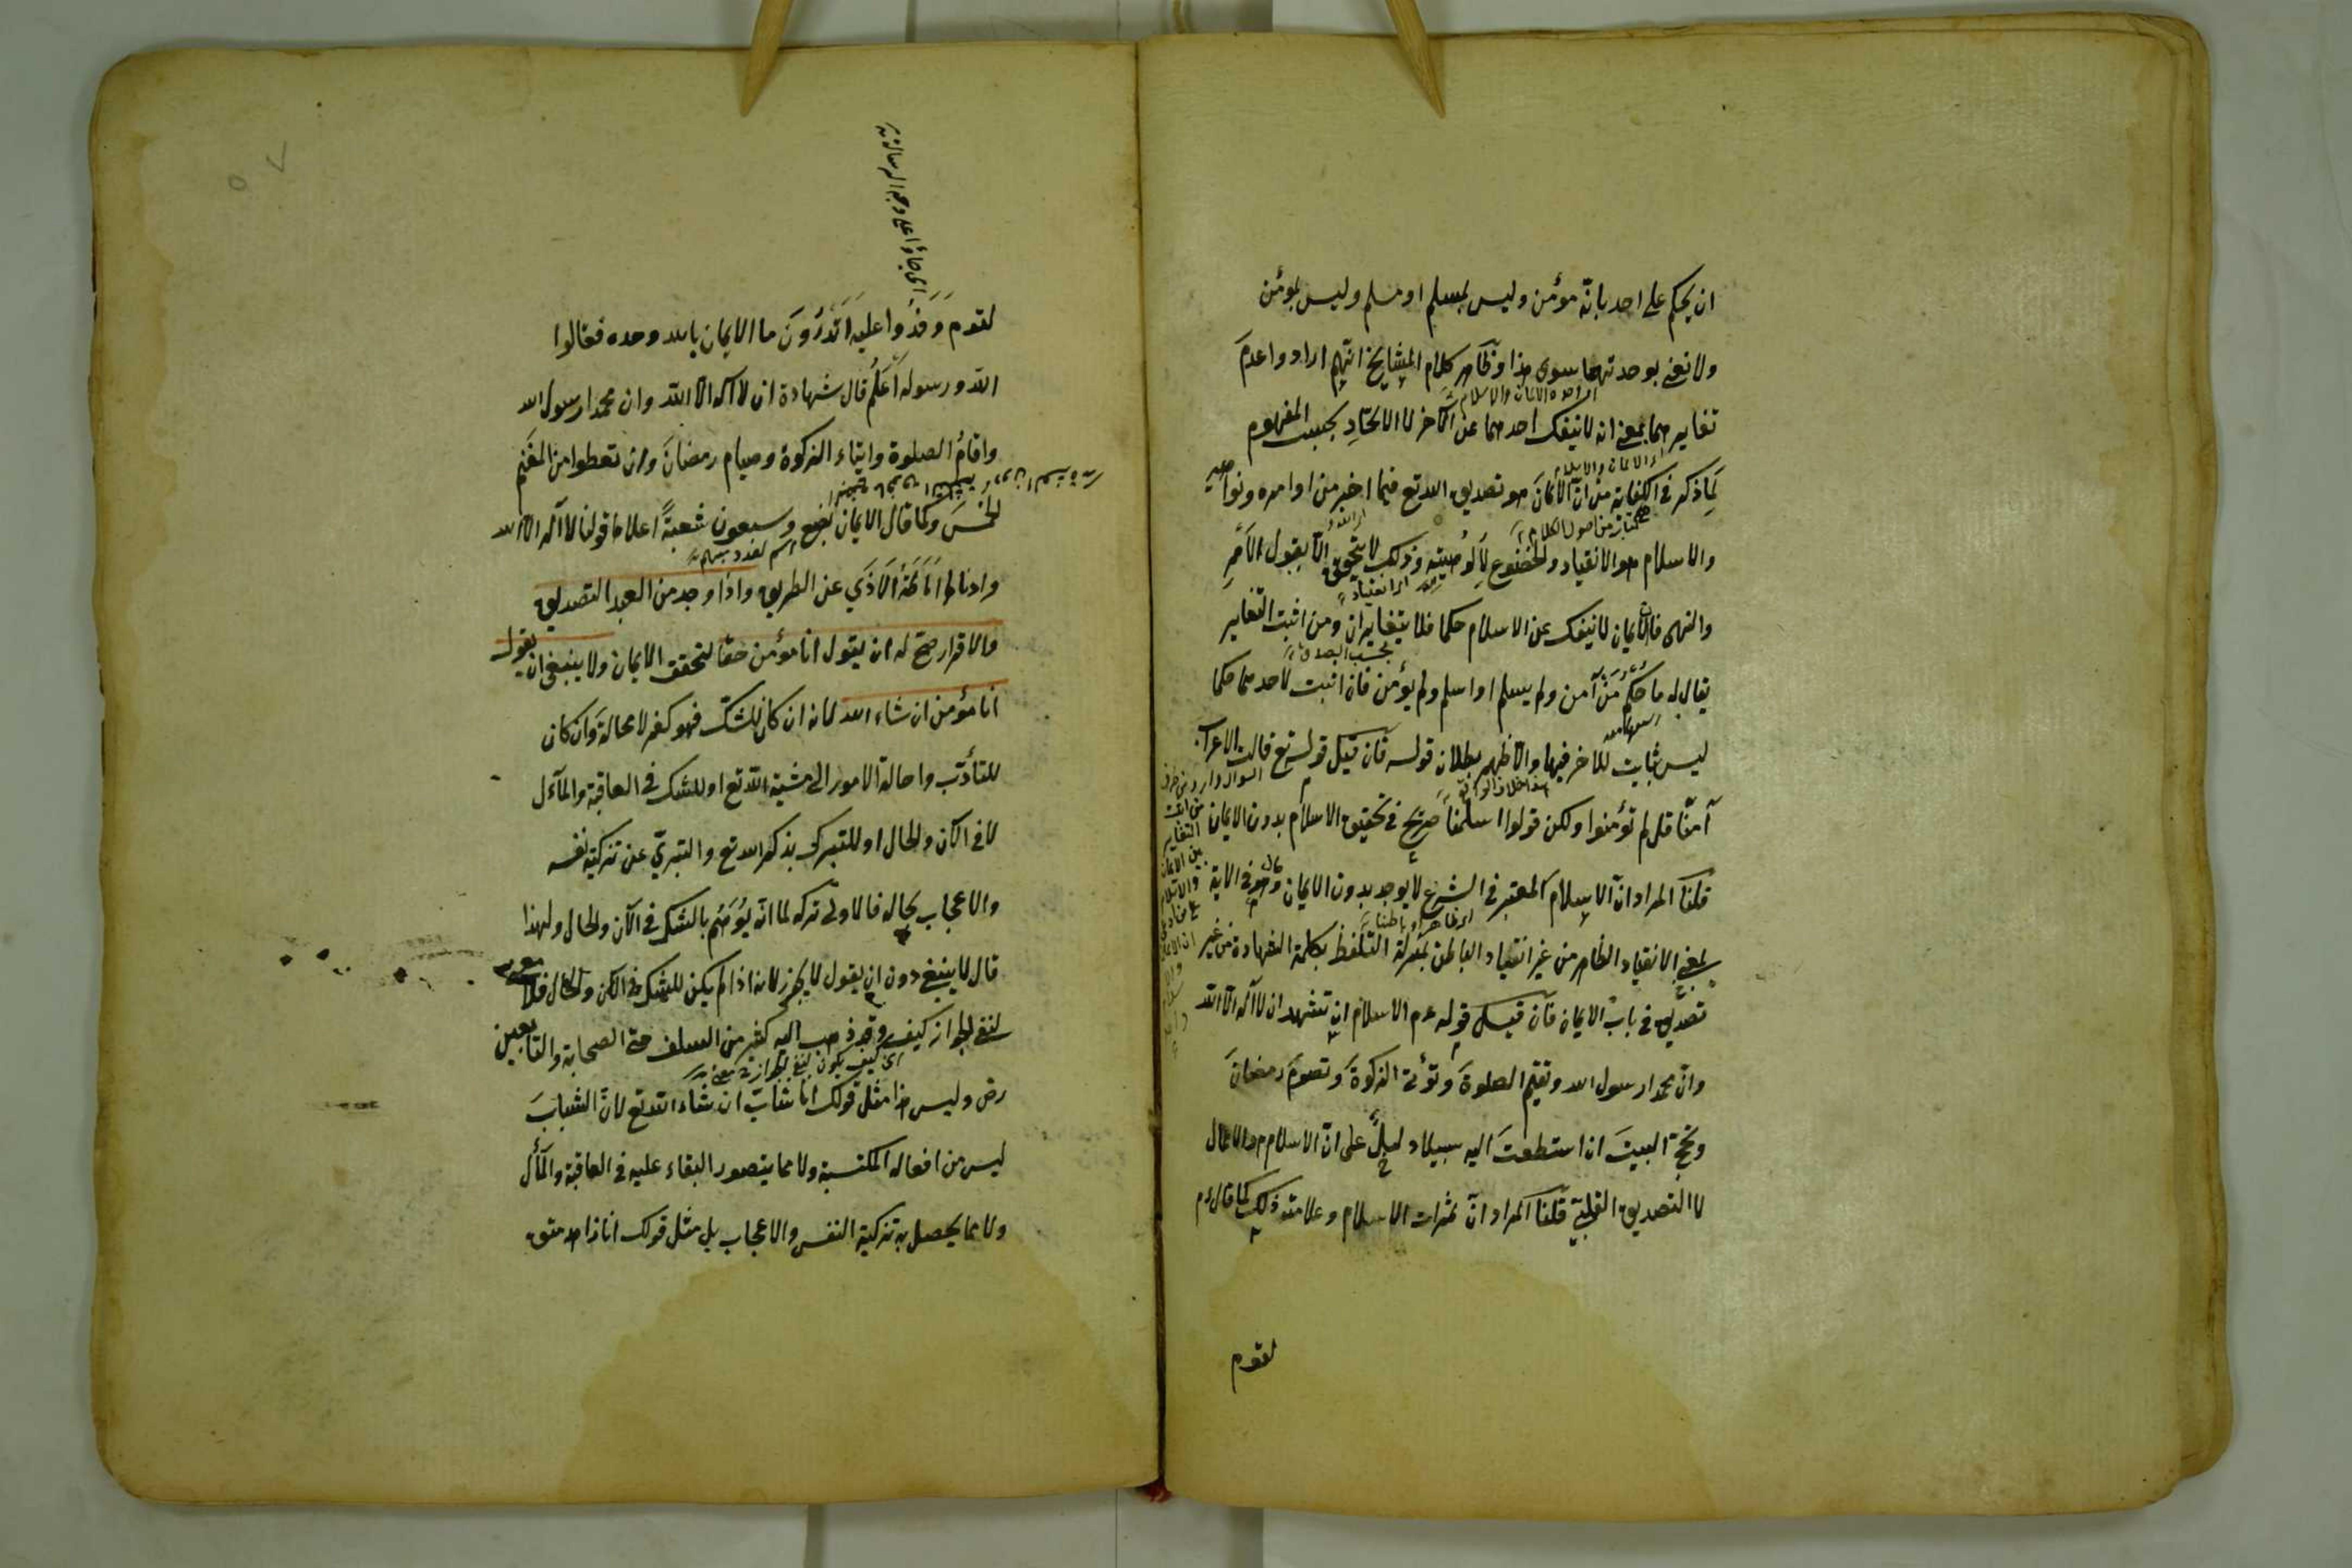 ان يحكم على احد بانّه مؤمن وليس بمسلم او مسلم وليس بمؤمن
ولا نعنى بوحدتهما سوى هذا وظاهر كلام المشايخ انّهم ارادوا عدم
تغايرهما بمعنى انه لا ينفك احدهما عن الآخر لا الاتحاد بحسب المفهوم
لما ذكر فى الكفاية من انّ الايمان هو تصديق الله تع فيما اخبر من اوامره ونواهيه
والاسلام هو الانقياد والخضوع لألوهيته وذلك لا يتحقق الّا بقبول الامر
والنهى فالايمان لا ينفك عن الاسلام حكما فلا يتغايران ومن اثبت التغاير
يقال له ما حكم من آمن ولم يسلم او اسلم ولم يؤمن فان اثبت لاحدهما حكما
ليس بثابت للاخر فبها والا ظهر بطلان قوله فان قيل قوله تع قالت الاعراب
آمنّا قل لم تؤمنوا ولكن قولوا اسلمنا صريح فى تحقيق الاسلام بدون الايمان
قلنا المراد انّ الاسلام المعتبر فى الشرع لا يوجد بدون الايمان وهو فى الاية
بمعنى الانقياد الظاهر من غير انقياد الباطن بمنزلة التلفظ بكلمة الشهادة من غير
تصديق فى باب الايمان فان قيل قوله عم الاسلام ان تشهد ان لا اله الا الله
وانّ محمدا رسول الله وتقيم الصلوة وتؤتى الزكوة وتصوم رمضان
وتحج البيت ان استطعت اليه سبيلا دليل على انّ الاسلام هو الاعمال
لا التصديق القلبىّ قلنا المراد انّ ثمرات الاسلام وعلامته ذلك كما قال عم
لقوم
اى جاؤا على وجه الرسالة
لقوم وفدوا عليه اتدرون ما الايمان بالله وحده فقالوا
الله ورسوله اعلم قال شهادة ان لا اله الا الله وان محمدا رسول الله
واقام الصلوة وايتاء الزكوة وصيام رمضان وان تعطوا من المغنم
الخمس وكما قال الايمان بضع وسبعون شعبة اعلاها قول لا اله الا الله
وادناها اماطة الاذى عن الطريق واذا وجد من العبد التصديق
والاقرار صح له ان يقول انا مؤمن حقا لتحقق الايمان ولا ينبغى ان يقول
انا مؤمن ان شاء الله لانه ان كان للشك فهو كفر لا محالة وان كان
للتأدّب واحالة الامور الى مشية الله تع او للشك فى العاقبة والمآل
لا فى الآن والحال او للتبرك بذكر الله تع والتبرىّ عن تزكية نفسه
والاعجاب بحاله فالاولى تركه لما انّه يوهم بالشك فى الآن والحال ولهذا
قال لا ينبغى دون ان يقول لا يجوز لانه اذا لم يكن للشك فى الآن والحال فلا معنى
لنفى الجواز كيف وقد ذهب اليه كثير من السلف حتى الصحابة والتابعين
اى كيف يكون لنفى الجواز معنى
رض وليس هذا مثل قولك انا شابّ ان شاء الله تع لانّ الشباب
ليس من افعاله المكتسبة ولا مما يتصور البقاء عليه فى العاقبة والمآل
ولا مما يحصل به تزكية النفس والاعجاب بل مثل قولك انا زاهد متق